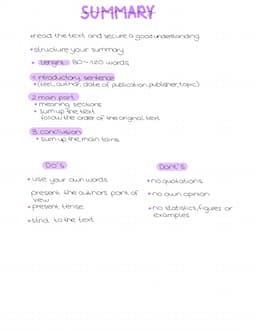 SUMMARY
• read the text and secure a good understanding
• structure your summary
• lenght: 80-120 words
1. introductory sentence
• (title, author, date of publication, publisher, topic)
2. main part
• meaning sections
• sum up the text
follow the order of the original text
3. conclusion
• sum up the main
Do's
• use your own words
present the authors point of
view
• present tense
• stick to the text
Dont's
• no quotations
• no own opinion
• no statistics, figures or
examples